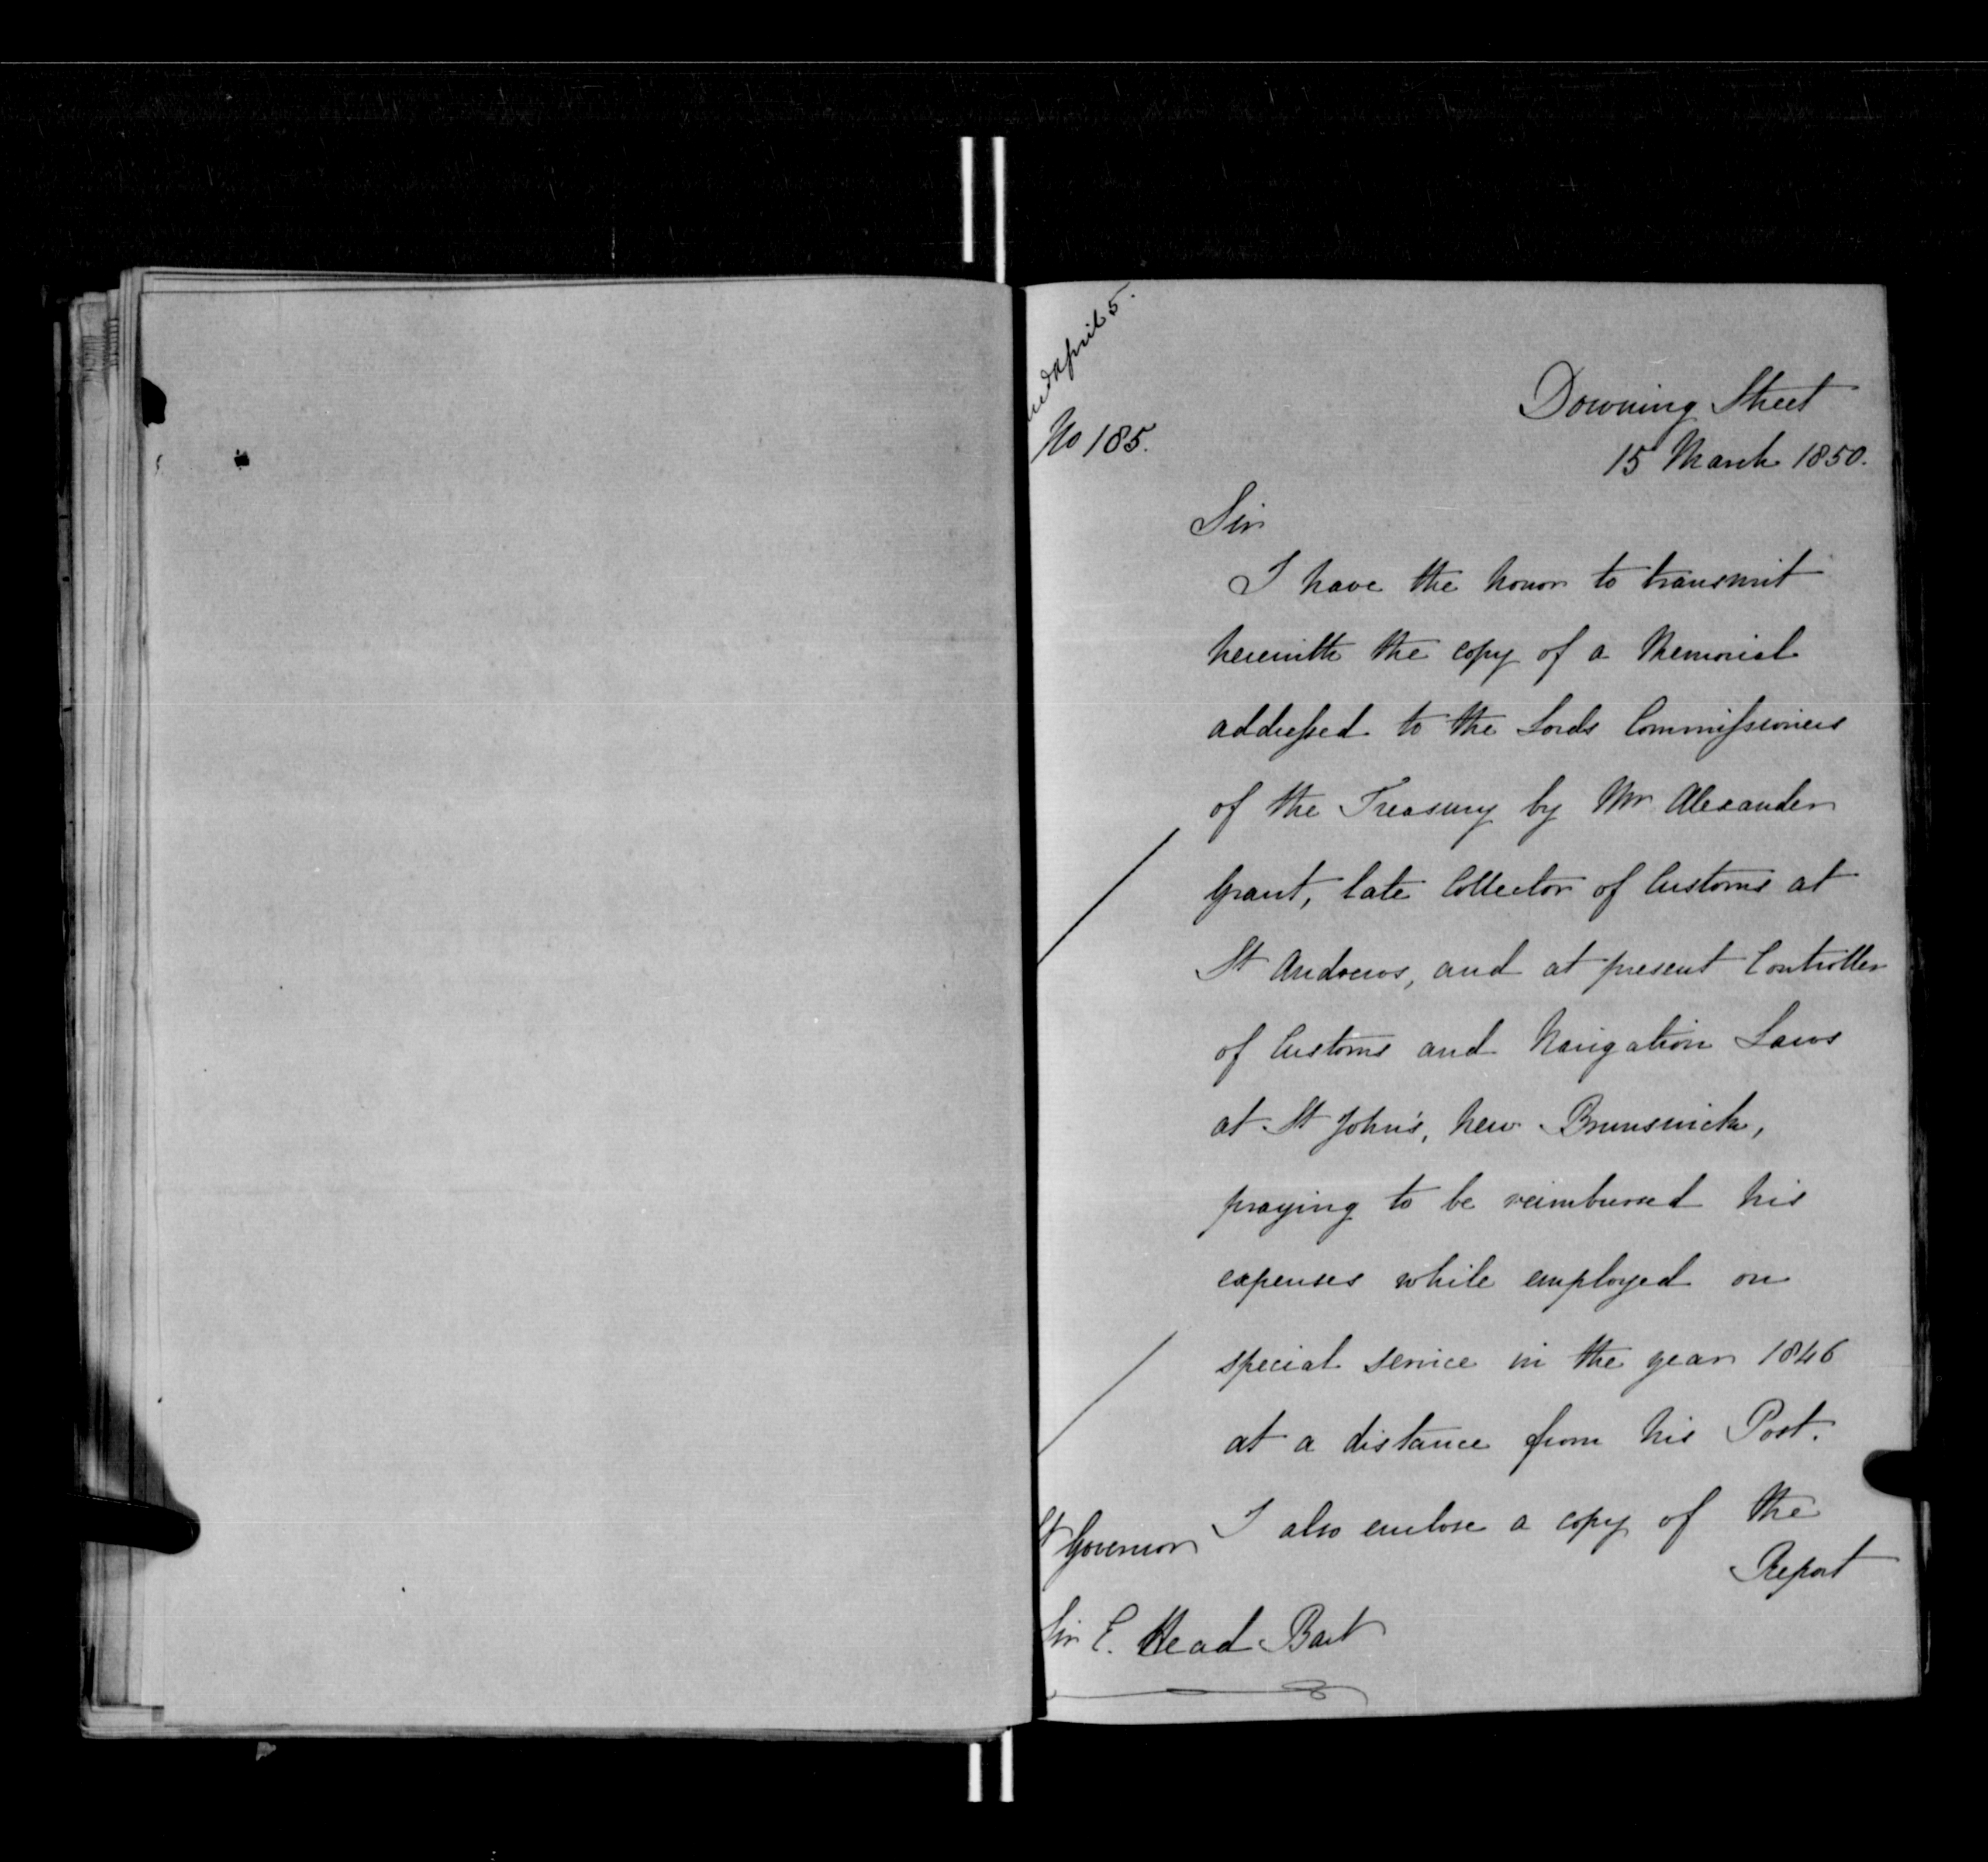 April 5.
No 185.
Downing Street
15 March 1850.
Sir
I have the honor to transmit
herewith the copy of a Memorial
addressed to the Lords Commissioners
of the Treasury by Mr Alexander
Grant, late Collector of Customs at
St Andrews, and at present Controller
of Customs and Navigation Laws
at St John's, New Brunswick,
praying to be reimbursed his
expenses while employed on
special service in the year 1846
at a distance from his Post.
I also enclose a copy of the
Report
Governor
Sir E. Head Bart